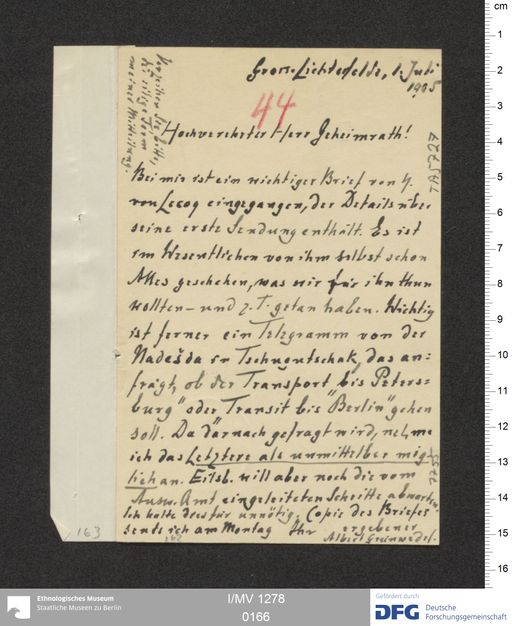 Gross-Lichterfelde, 1. Juli
1905
44
Verzeihen Sie bitte,
die eilige Form
meiner Mitteilung.
Hochverehrter Herr Geheimrath!
Bei mir ist ein wichtiger Brief von H.
von Lecoq eingegangen, der Details über
seine erste Sendung enthält. Es ist
im Wesentlichen von ihm selbst schon
Alles geschehen, was wir für ihn thun
wollten – und z. T. getan haben. Wichtig
ist ferner ein Telegramm von der
Nadešda in Tschugutschak, das an-
frägt, ob der Transport "bis Peters-
burg" oder Transit bis "Berlin" gehen
soll. Da darnach gefragt wird, nehme
ich das Letztere als unmittelbar mög-
lich an. Eilsb. will aber noch die vom
Ausw. Amt eingeleiteten Schritte abwarten.
Ich halte dies für unnötig. Copie des Briefes
sende ich am Montag Ihr ergebener
Albert Grünwedel.
163
Ethnologisches Museum
Staatliche Museen zu Berlin
I/MV 1278
0166
Gefördert durch
DFG
Deutsche
Forschungsgemeinschaft
cm
1
2
3
4
5
6
7
8
9
10
11
12
13
14
15
16